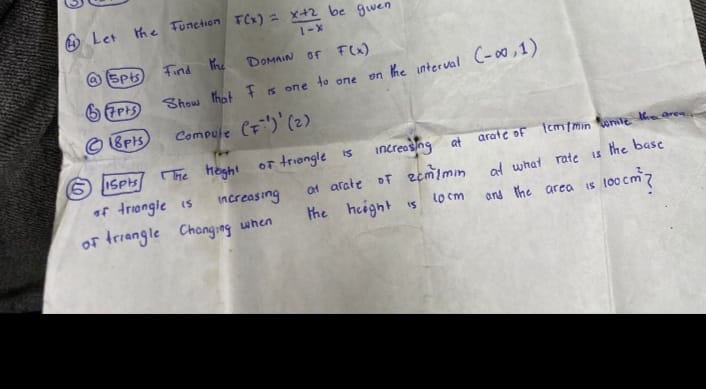 ④ Let the Function F(x) = x+2 / 1-x be given
ⓐ 5pts Find the DOMAIN OF F(x)
ⓑ 7pts Show that F is one to one on the interval (-∞, 1)
ⓒ 8pts Compute (F⁻¹)'(2)
⑤ 15pts The heght of triangle is increasing at arate of 1cm/min while the area
of triangle is increasing at arate of 2cm²/min at what rate is the base
of triangle Changing when the height is 10cm and the area is 100cm²?